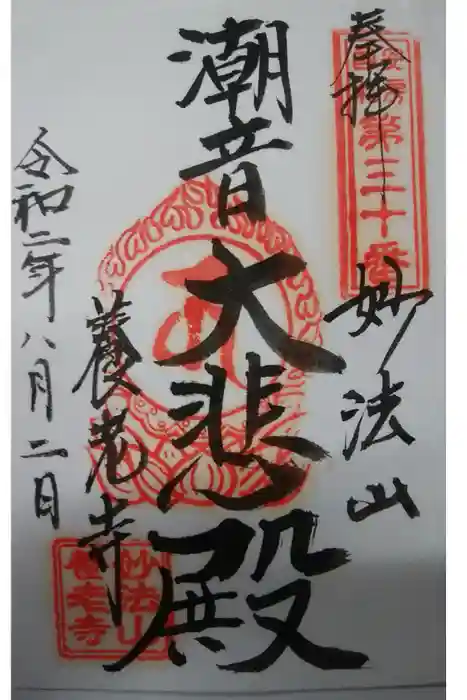 奉拝
第三十番
妙法山
潮音
大悲殿
養老寺
令和二年八月二日
妙法山
養老寺